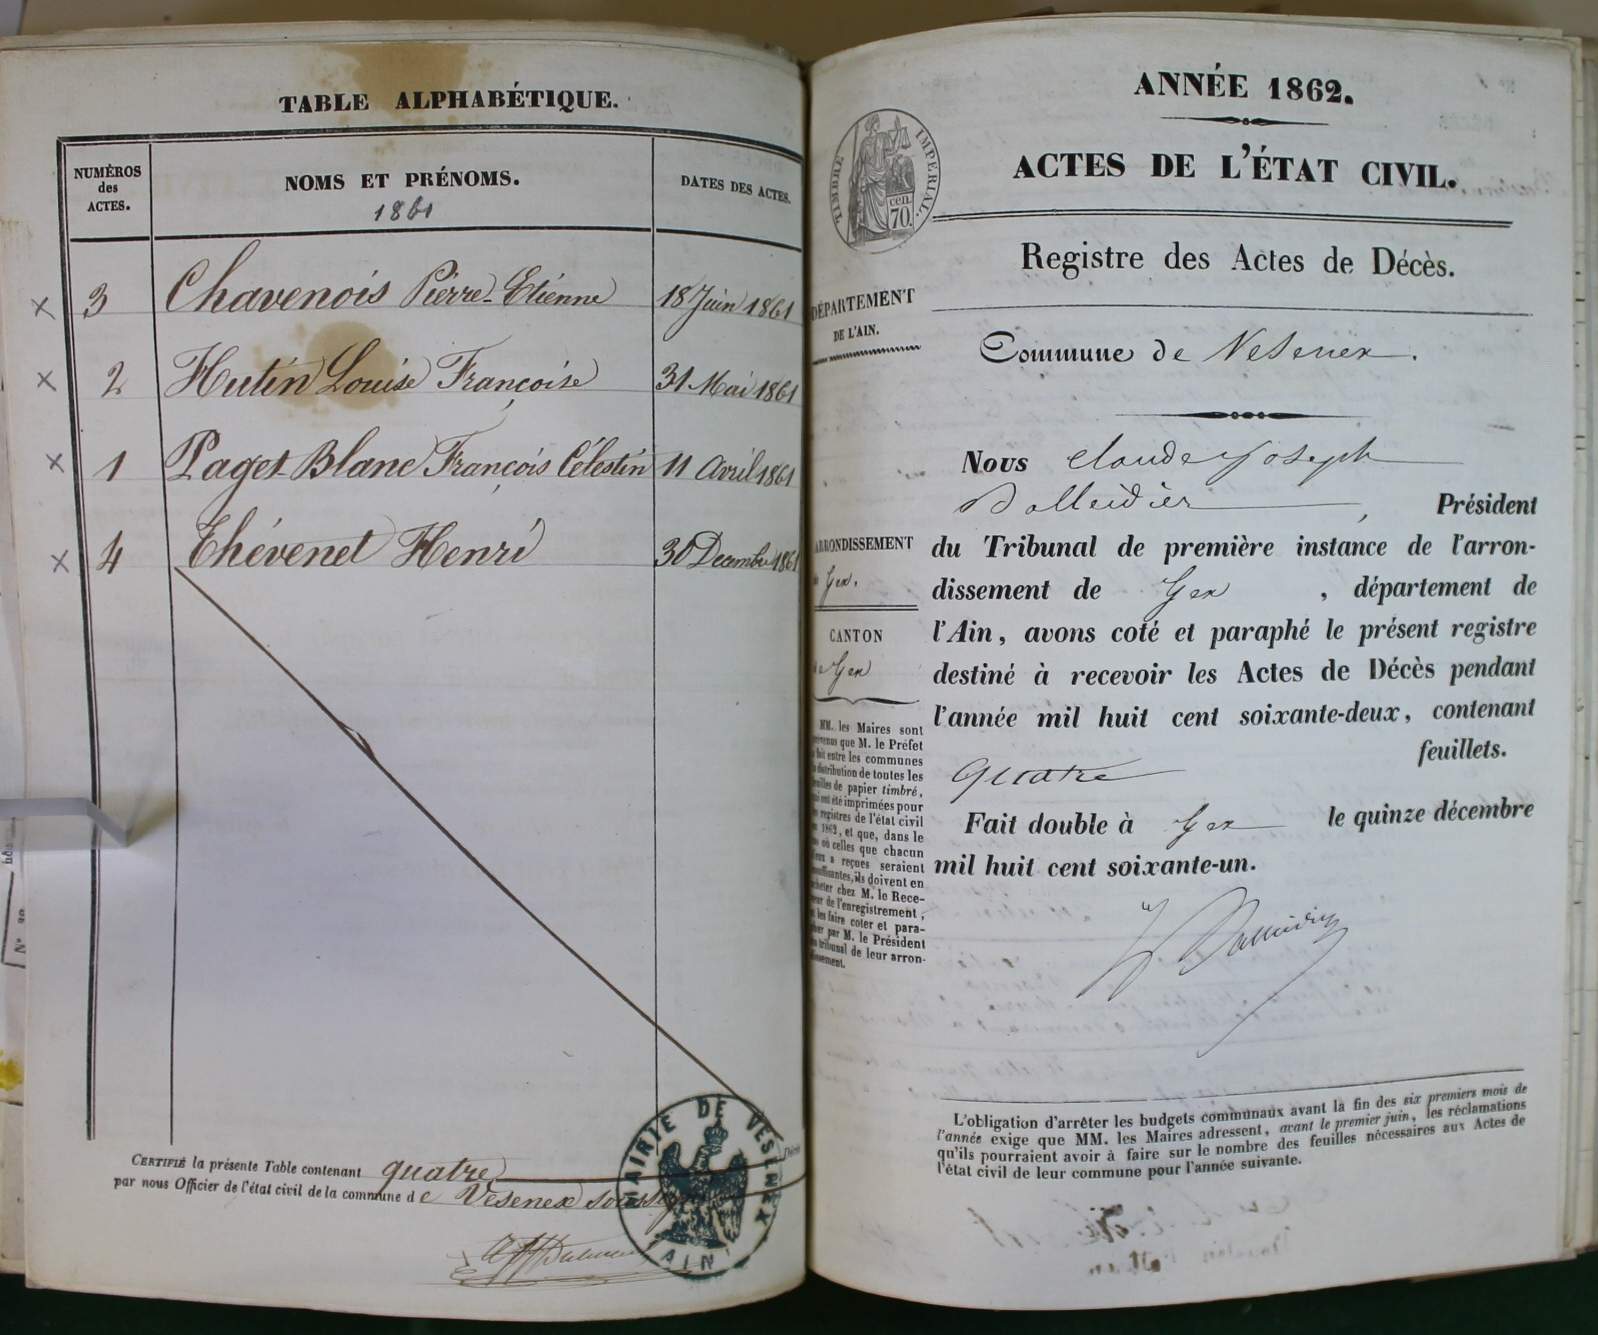 TABLE ALPHABÉTIQUE.
NUMÉROS
des
ACTES.
NOMS ET PRÉNOMS.
1861
DATES DES ACTES.
× 3 Chavenois Pierre-Etienne 18 Juin 1861
× 2 Hutin Louise Françoise 31 Mai 1861
× 1 Paget-Blanc François Célestin 11 Avril 1861
× 4 Thévenet Henri 30 Decembre 1861
CERTIFIÉ la présente Table contenant quatre
par nous Officier de l'état civil de la commune de Vesenex
MAIRIE DE VESENEX
AIN
ANNÉE 1862.
ACTES DE L'ÉTAT CIVIL.
TIMBRE IMPÉRIAL.
cen.
70.
Registre des Actes de Décès.
DÉPARTEMENT
DE L'AIN.
Commune de Vesenex.
ARRONDISSEMENT
Gex.
CANTON
de Gex
Nous Claude Joseph
Dalleidier, Président
du Tribunal de première instance de l'arron-
dissement de Gex, département de
l'Ain, avons coté et paraphé le présent registre
destiné à recevoir les Actes de Décès pendant
l'année mil huit cent soixante-deux, contenant
quatre feuillets.
Fait double à Gex le quinze décembre
mil huit cent soixante-un.
MM. les Maires sont
prévenus que M. le Préfet
a fait entre les communes
la distribution de toutes les
feuilles de papier timbré,
qui ont été imprimées pour
les registres de l'état civil
en 1862, et que, dans le
cas où celles que chacun
d'eux a reçues seraient
insuffisantes, ils doivent en
acheter chez M. le Rece-
veur de l'enregistrement,
et les faire coter et para-
pher par M. le Président
du tribunal de leur arron-
dissement.
L'obligation d'arrêter les budgets communaux avant la fin des six premiers mois de
l'année exige que MM. les Maires adressent, avant le premier juin, les réclamations
qu'ils pourraient avoir à faire sur le nombre des feuilles nécessaires aux Actes de
l'état civil de leur commune pour l'année suivante.